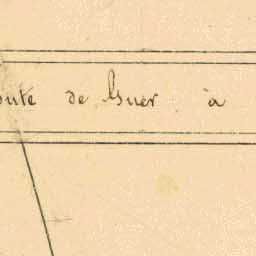 oute de Guer à